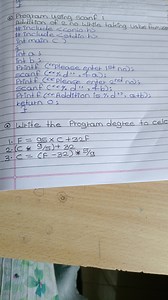 Program using scanf :
Addition of 2 no while taking value from user
# include <conio.h>
# include <stdio.h>
int main ( )
{
int a ;
int b ;
Printf ("Please enter 1st no);
scanf ("% d", & a);
Printf ("Please enter 2nd no);
Scanf ("% d", & b);
Printf ("Addition is % d", a+b);
return 0;
}
Write the Program degree to Celc
1. F = 95 × C + 32F
2. (C * 9/5) + 32
3. C = (F - 32) * 5/9